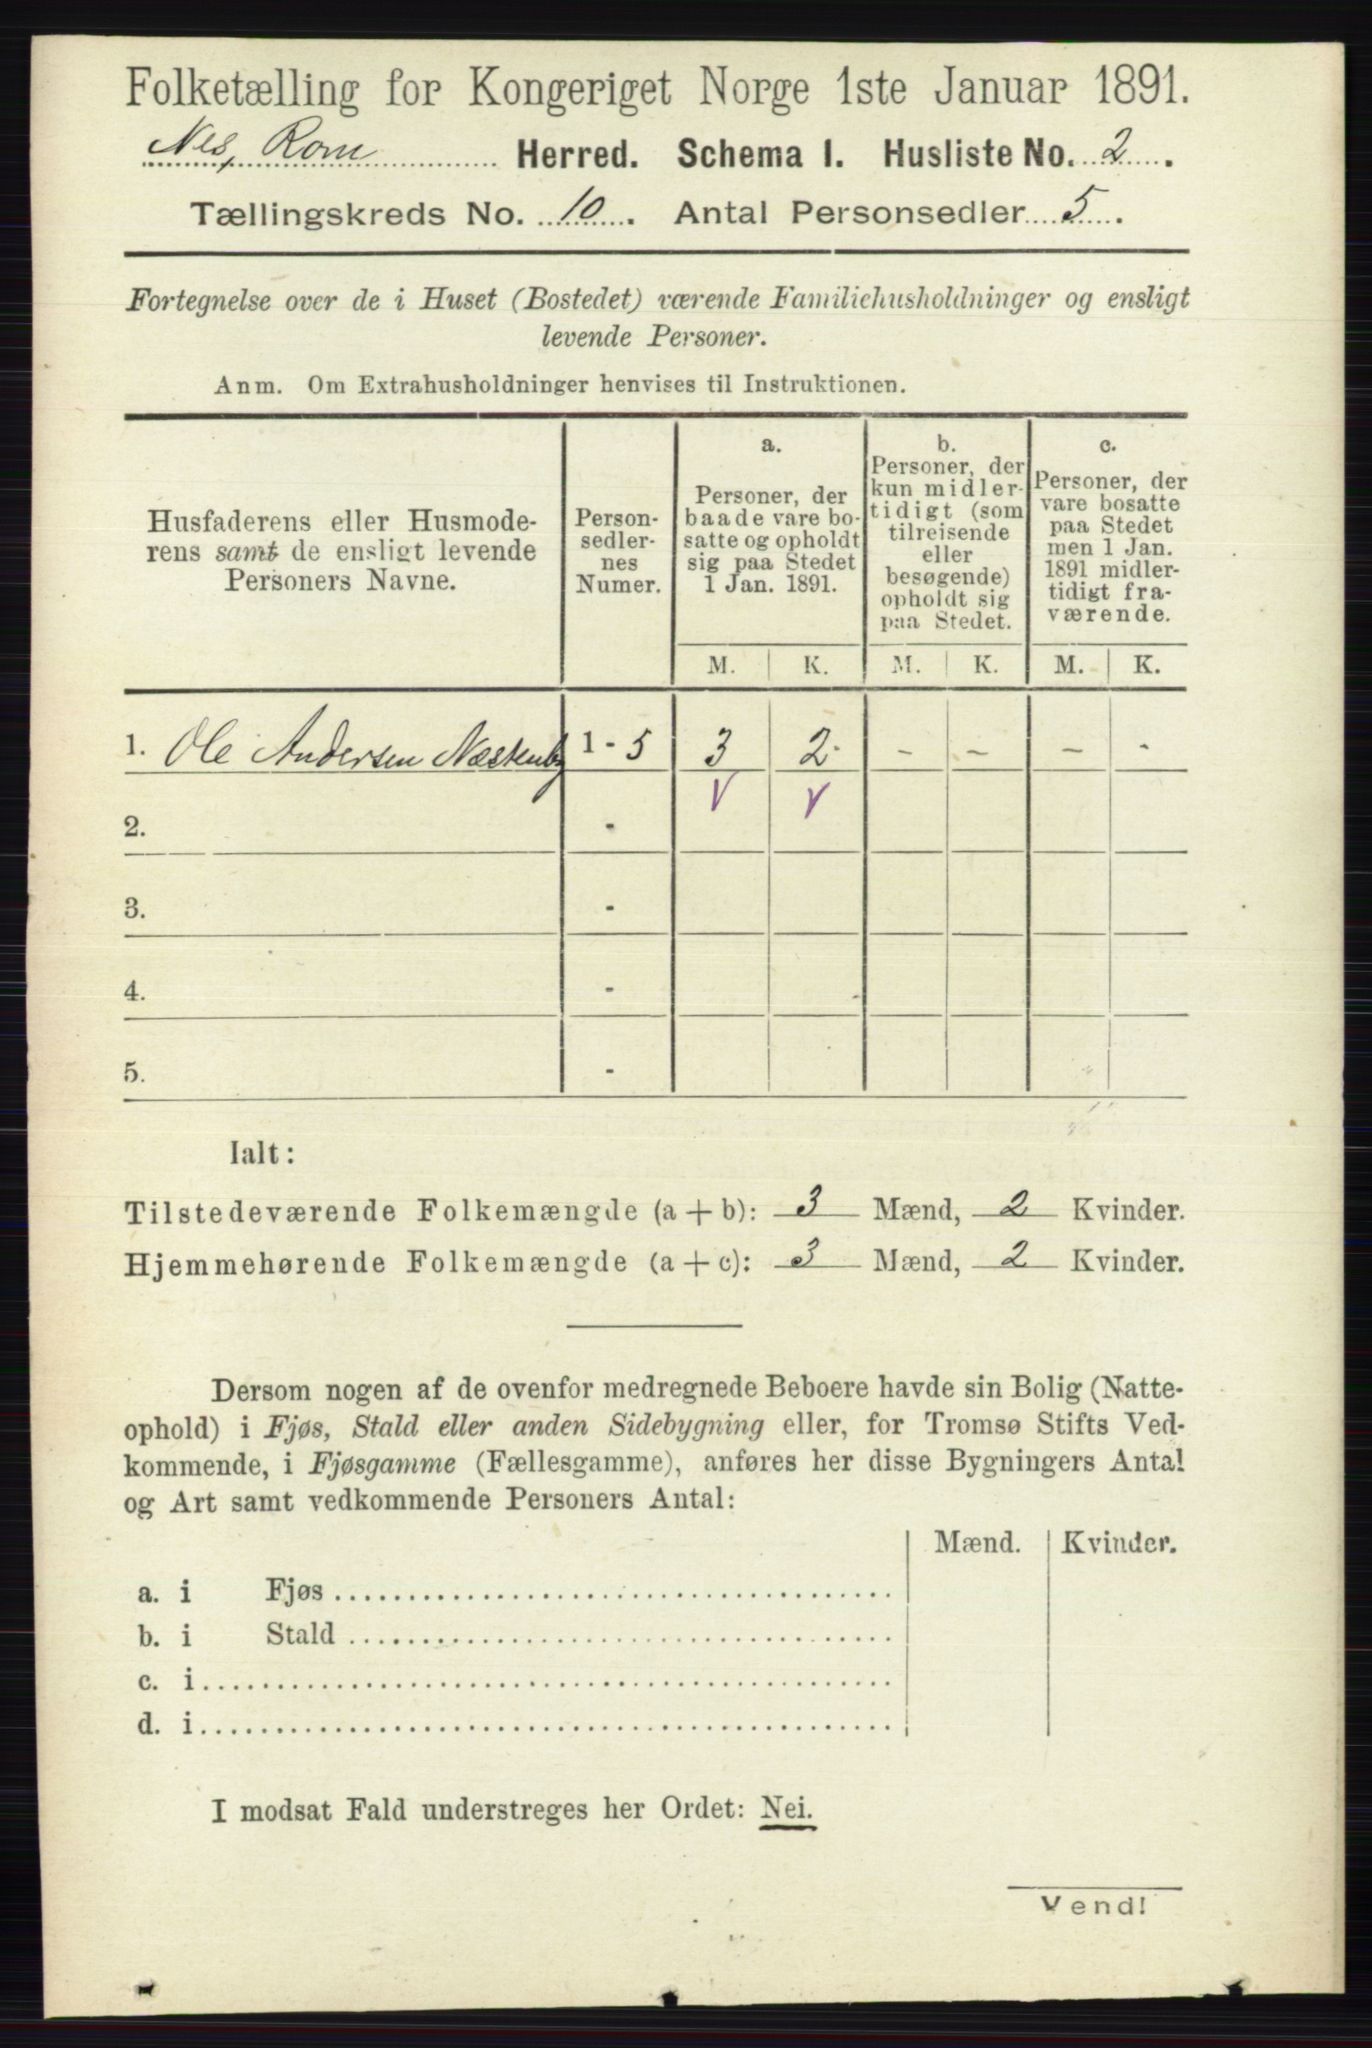 Folketælling for Kongeriget Norge 1ste Januar 1891.
Nes, Rom Herred. Schema I. Husliste No. 2.
Tællingskreds No. 10. Antal Personsedler 5.
Fortegnelse over de i Huset (Bostedet) værende Familiehusholdninger og ensligt
levende Personer.
Anm. Om Extrahusholdninger henvises til Instruktionen.
Husfaderens eller Husmode-
rens samt de ensligt levende
Personers Navne.
Person-
sedler-
nes
Numer.
a.
Personer, der
baade vare bo-
satte og opholdt
sig paa Stedet
1 Jan. 1891.
b.
Personer, der
kun midler-
tidigt (som
tilreisende
eller
besøgende)
opholdt sig
paa Stedet.
c.
Personer, der
vare bosatte
paa Stedet
men 1 Jan.
1891 midler-
tidigt fra-
værende.
M. K. M. K. M. K.
1. Ole Andersen Næstenby 1 - 5 3 2 - - - -
2. -
3. -
4. -
5. -
Ialt:
Tilstedeværende Folkemængde (a + b): 3 Mænd, 2 Kvinder.
Hjemmehørende Folkemængde (a + c): 3 Mænd, 2 Kvinder.
Dersom nogen af de ovenfor medregnede Beboere havde sin Bolig (Natte-
ophold) i Fjøs, Stald eller anden Sidebygning eller, for Tromsø Stifts Ved-
kommende, i Fjøsgamme (Fællesgamme), anføres her disse Bygningers Antal
og Art samt vedkommende Personers Antal:
Mænd. Kvinder.
a. i Fjøs
b. i Stald
c. i
d. i
I modsat Fald understreges her Ordet: Nei.
Vend!